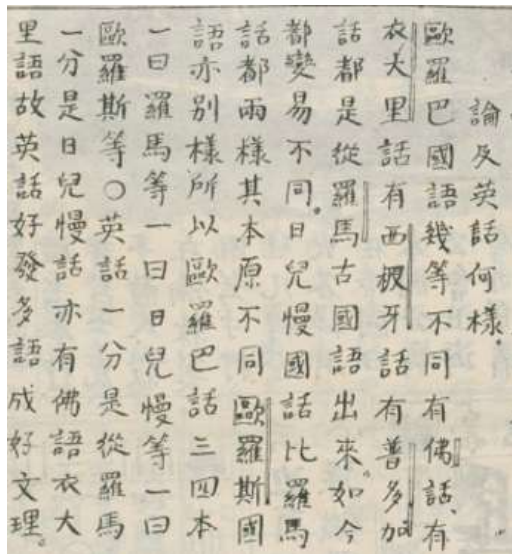 論及英話何樣。
歐羅巴國語幾等不同有佛話、有
衣大里話有西㮟牙話有普多加
話都是從羅馬古國語出來。如今
都變易不同。日兒慢國話比羅馬
話都兩樣其本原不同歐羅斯國
語亦別樣所以歐羅巴話三四本
一曰羅馬等一曰日兒慢等一曰
歐羅斯等〇英話一分是從羅馬
一分是日兒慢話亦有佛語衣大
里語故英話好發多語成好文理。